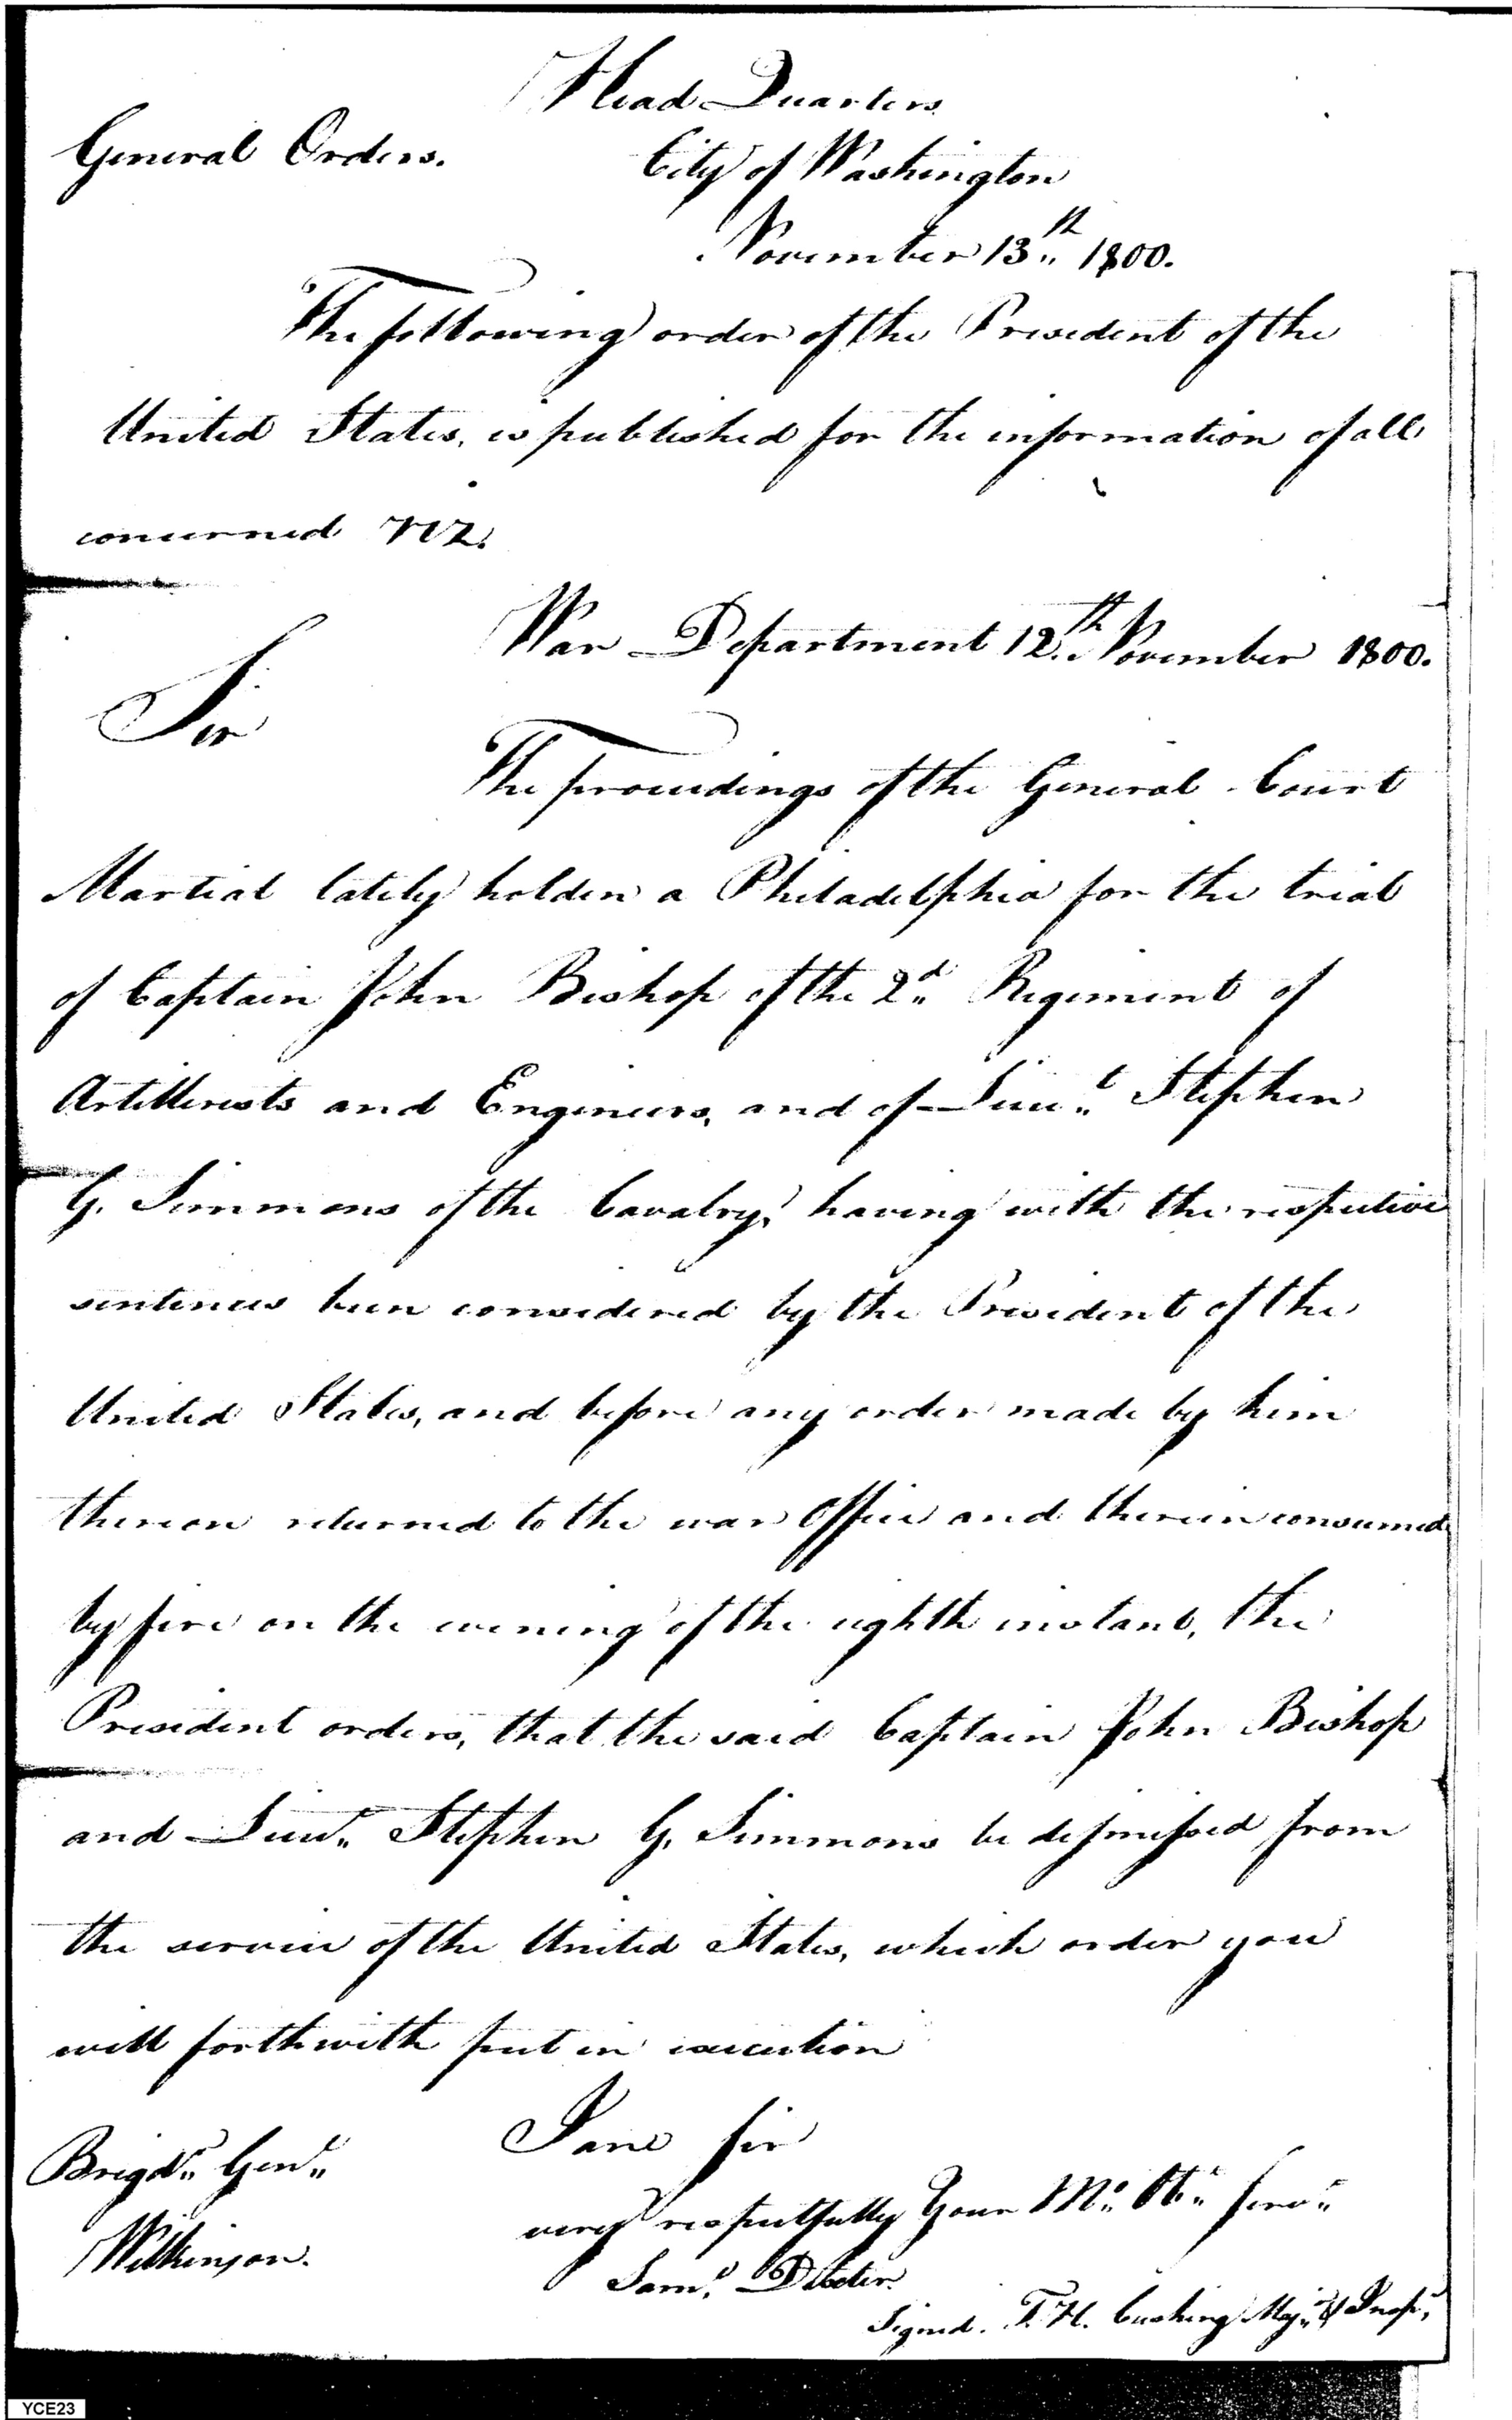 Head Quarters
General Orders. City of Washington
November 13th 1800.
The following order of the President of the
United States, is published for the information of all
concerned viz.
War Department 12th November 1800.
Sir
The proceedings of the General Court
Martial lately holden a Philadelphia for the trial
of Captain John Bishop of the 2d Regiment of
Artillerists and Engineers, and of Lieut Stephen
G. Simmons of the Cavalry, having with the respective
sentences been considered by the President of the
United States, and before any order made by him
thereon returned to the war Office and therein consumed
by fire on the evening of the eighth instant, the
President orders, that the said Captain John Bishop
and Lieut Stephen G. Simmons be dismissed from
the service of the United States, which order you
will forthwith put in execution
I am Sir
Brigdr Genl very respectfully Your Mo Ot Servt
Wilkinson. Saml Dexter.
Signed. T. H. Cushing Majr & Inspr
YCE23